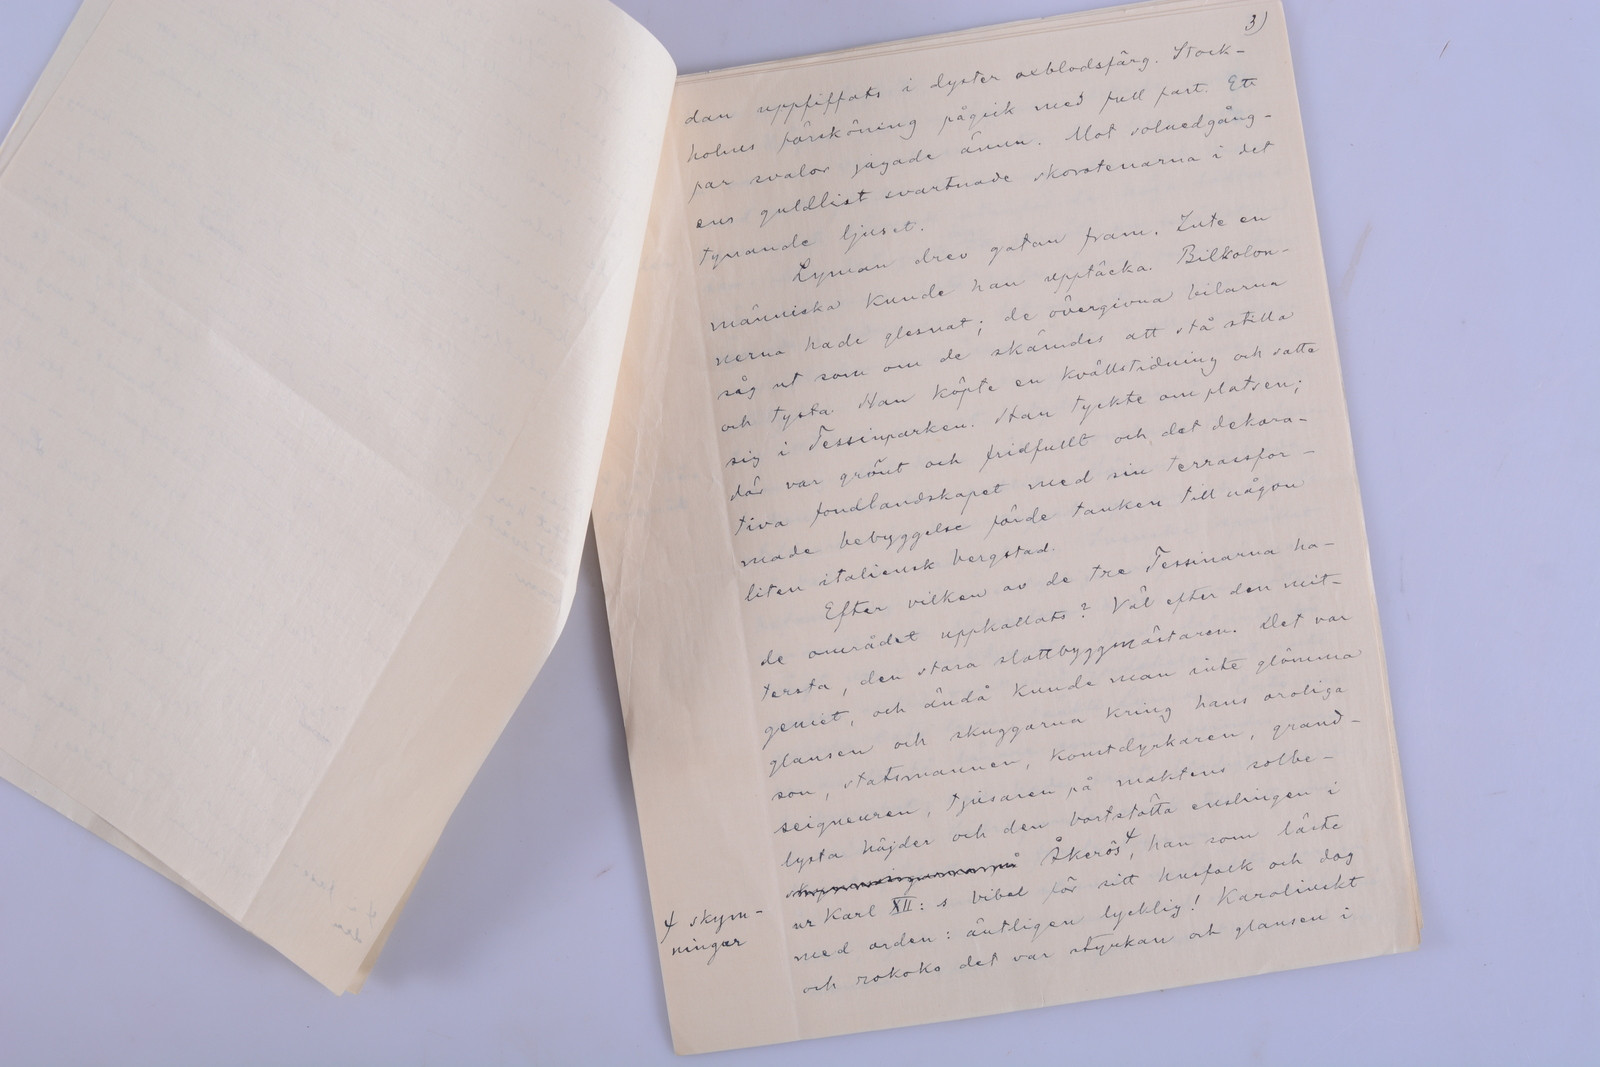 3)
dan uppfiffats i dyster oxblodsfärg. Stock-
holms försköning pågick med full fart. Ett
par svalor jagade ännu. Mot solnedgång-
ens guldlist svartnade skorstenarna i det
tynande ljuset.
Lyman drev gatan fram. Inte en
människa kunde han upptäcka. Bilkolon-
nerna hade glesnat; de övergivna bilarna
såg ut som om de skämdes att stå stilla
och tysta. Han köpte en kvällstidning och satte
sig i Tessinparken. Han tyckte om platsen;
där var grönt och fridfullt och det dekora-
tiva fondlandskapet med sin terrassfor-
made bebyggelse förde tanken till någon
liten italiensk bergstad.
Efter vilken av de tre Tessinarna ha-
de området uppkallats? Väl efter den mit-
tersta, den stora slottbyggmästaren. Det var
geniet, och ändå kunde man inte glömma
glansen och skuggorna kring hans oroliga
son, statsmannen, konstdyrkaren, grand-
seigneuren, tjusaren på maktens solbe-
lysta höjder och den bortstötta enslingen i
Åkerös, han som läste
ur Karl XII:s bibel för sitt husfolk och dog
med orden: äntligen lycklig! Karolinskt
och rokoko det var styrkan och glansen i
skym-
ningar